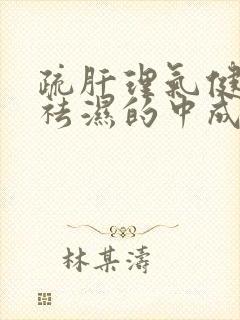 疏肝理氣健
祛濕的中成
林某濤